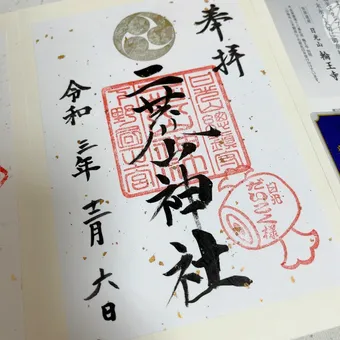 奉拝
二荒山神社
令和三年十二月六日
日光
だいこく様
日光山 輪王寺